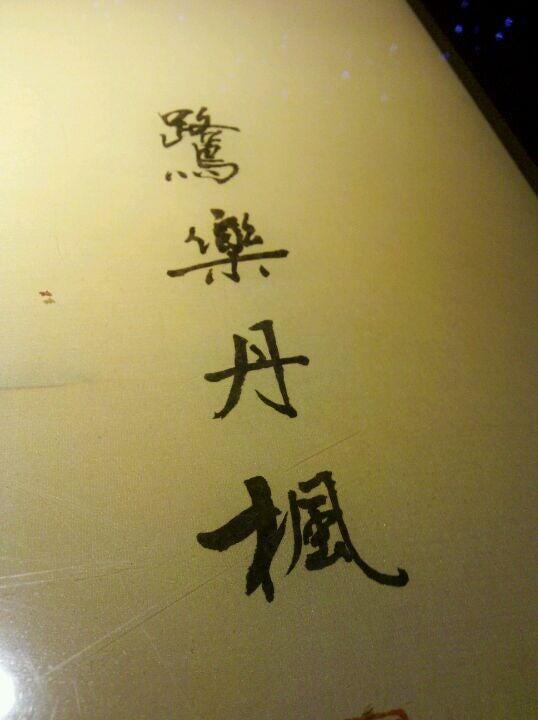 鷺樂丹楓